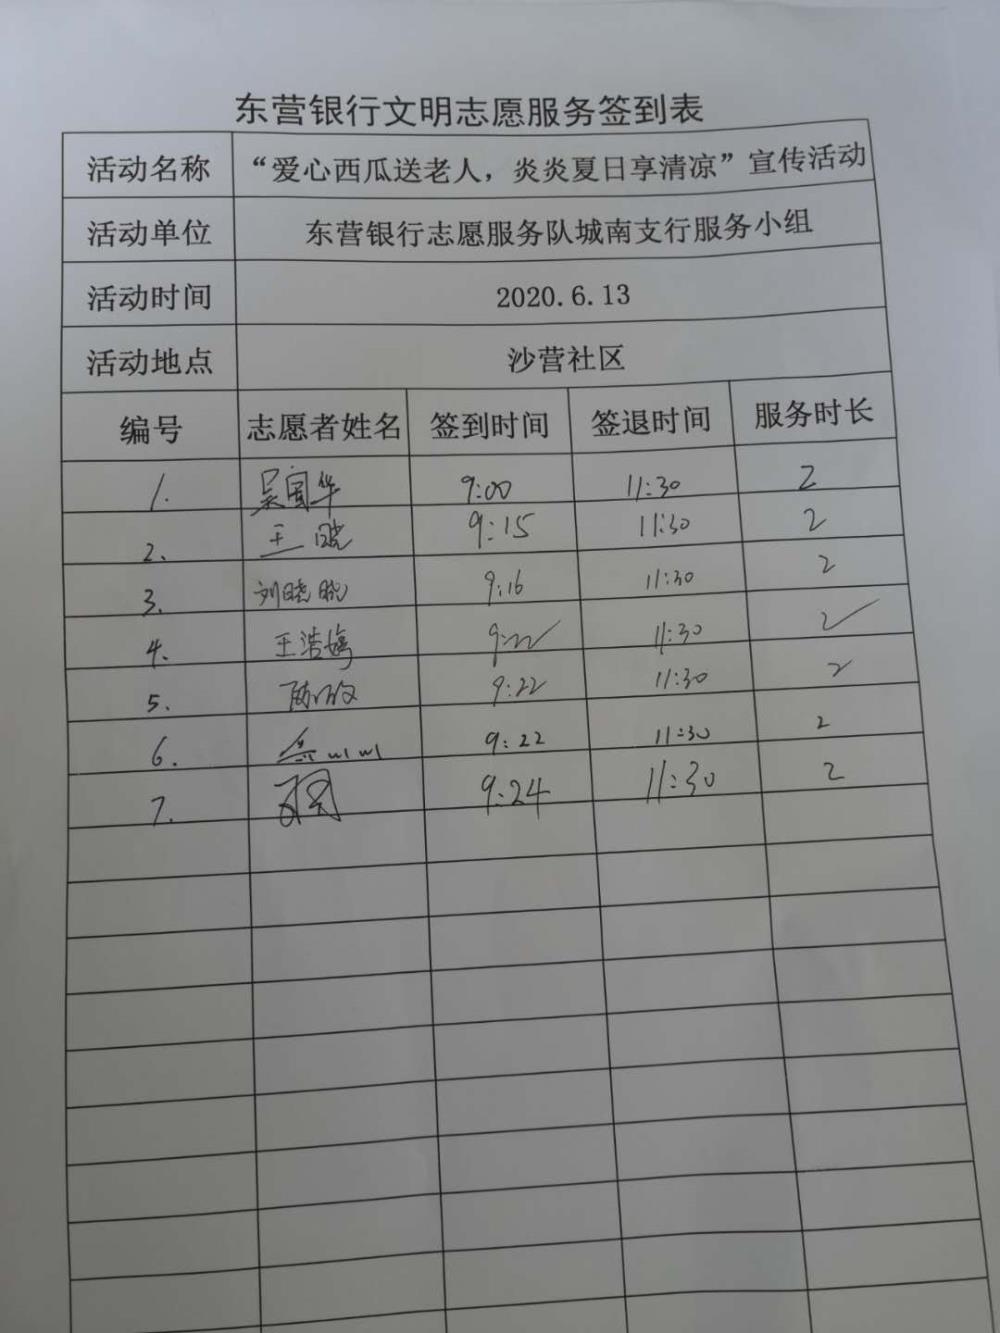 东营银行文明志愿服务签到表
活动名称 “爱心西瓜送老人，炎炎夏日享清凉”宣传活动
活动单位 东营银行志愿服务队城南支行服务小组
活动时间 2020.6.13
活动地点 沙营社区
编号 志愿者姓名 签到时间 签退时间 服务时长
1. 吴国华 9:00 11:30 2
2. 王晓 9:15 11:30 2
3. 刘晓晓 9:16 11:30 2
4. 王浩婷 9:22 11:30 2
5. 9:22 11:30 2
6. 9:22 11:30 2
7. 9:24 11:30 2